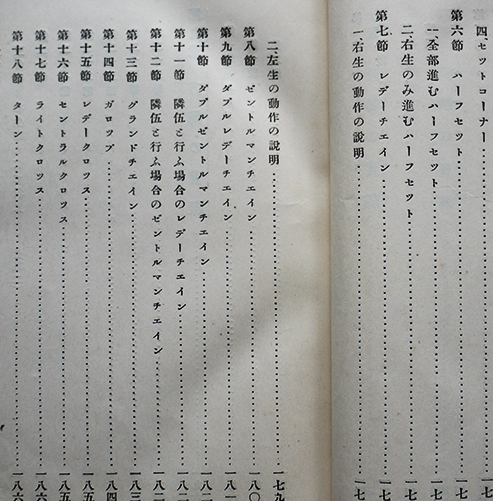 四、セットコーナー……一七
第六節 ハーフセット……一七
一、全部進むハーフセット……一七
二、右生のみ進むハーフセット……一七
第七節 レデーチエイン……一七
一、右生の動作の説明……一七
二、左生の動作の説明……一七九
第八節 ゼントルマンチエイン……一八〇
第九節 ダブルレデーチエイン……一八一
第十節 ダブルゼントルマンチエイン……一八
第十一節 隣伍と行ふ場合のレデーチエイン……一八二
第十二節 隣伍と行ふ場合のゼントルマンチエイン……一八二
第十三節 グランドチエイン……一八
第十四節 ガロップ……一八四
第十五節 レデークロッス……一八五
第十六節 セントラルクロッス……一八五
第十七節 ライトクロッス……一八六
第十八節 ターン……一八六